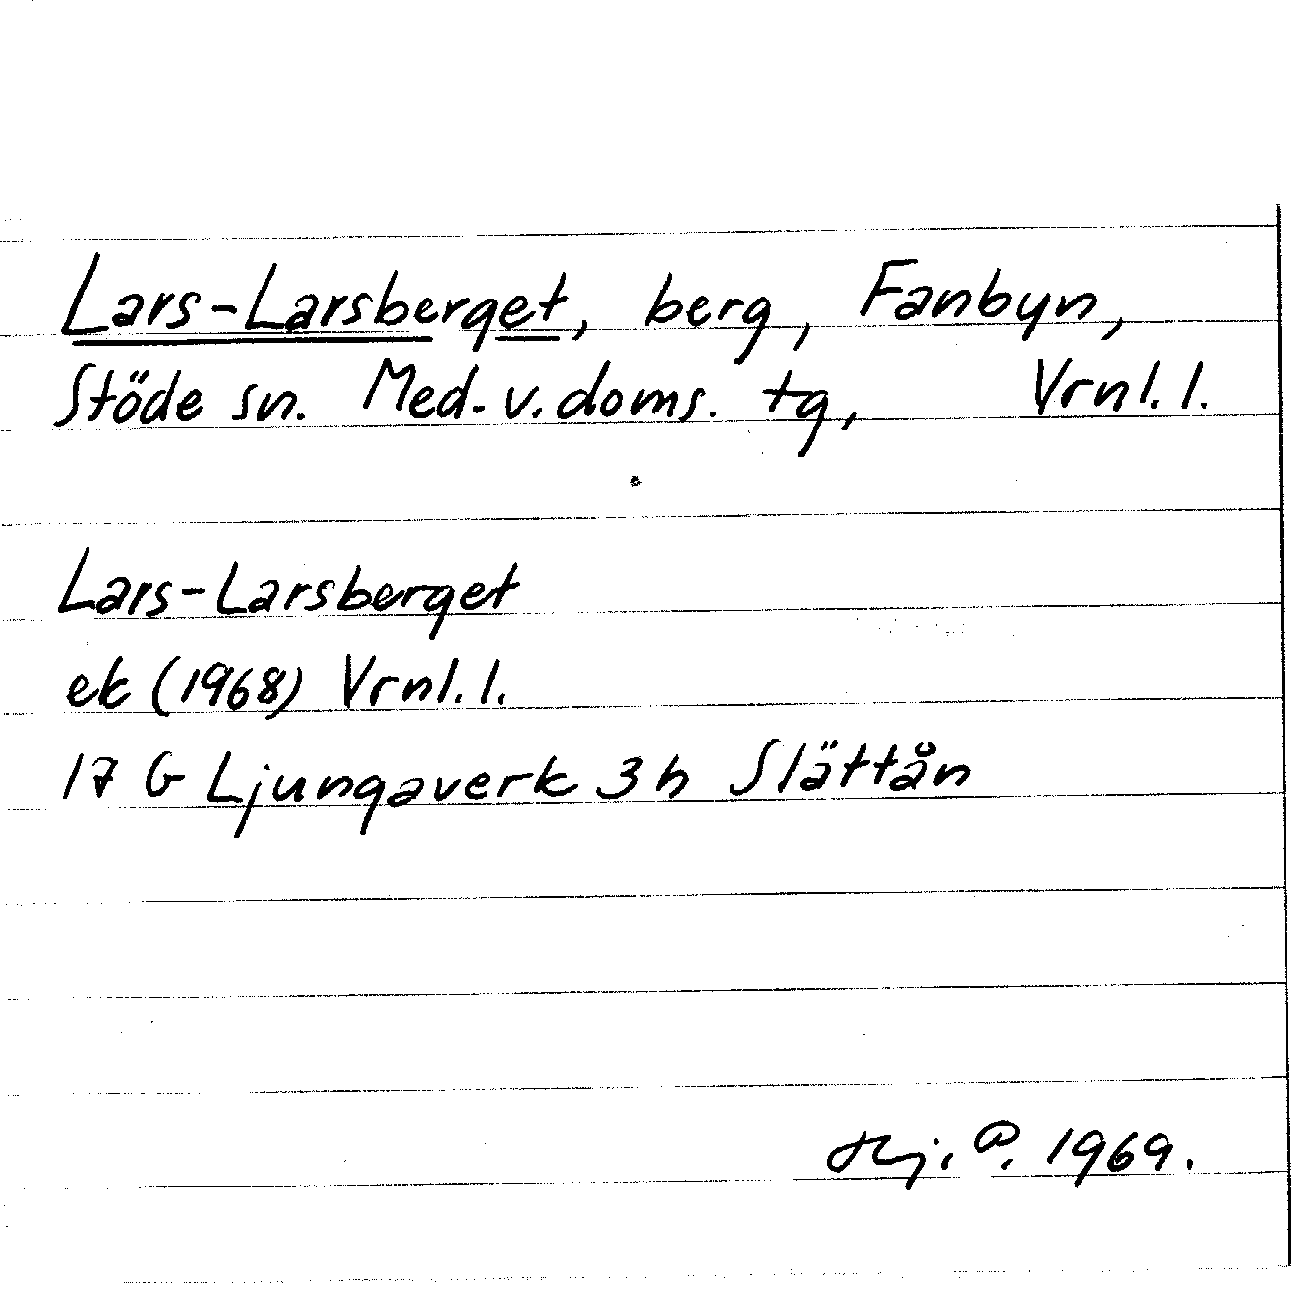 Lars-Larsberget, berg, Fanbyn,
Stöde sn. Med. v. doms. tg, Vrnl. l.
Lars-Larsberget
ek (1968) Vrnl. l.
17 G Ljungaverk 3 h Slättån
Hj. P. 1969.